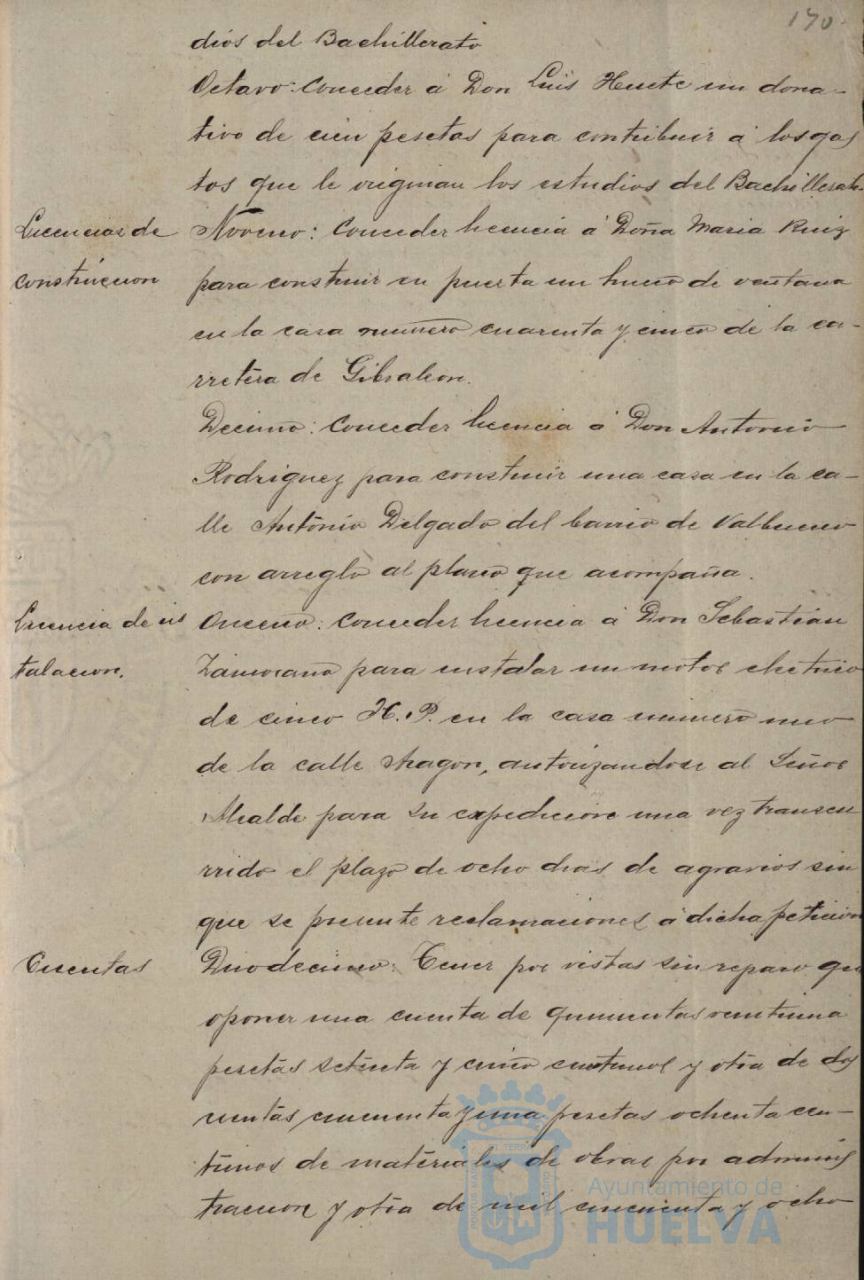 170.
dios del Bachillerato
Octavo: Conceder á Don Luis Huete un dona-
tivo de cien pesetas para contribuir á los gas
tos que le originan los estudios del Bachillerato
Licencias de
construccion
Noveno: Conceder licencia á Doña Maria Ruiz
para construir en puerta un hueco de ventana
en la casa número cuarenta y cinco de la ca-
rretera de Gibraleon.
Decimo: Conceder licencia á Don Antonio
Rodriguez para construir una casa en la ca-
lle Antonio Delgado del barrio de Valbueno
con arreglo al plano que acompaña.
Licencia de ins
talacion.
Onceno: Conceder licencia á Don Sebastian
Zamorano para instalar un motor electrico
de cinco H.P. en la casa número
de la calle Aragon, autorizandose al Señor
Alcalde para su expedicion una vez transcu
rrido el plazo de ocho dias de agravios sin
que se presente reclamaciones á dicha peticion
Cuentas
Duodecimo: Tener por vistas sin reparo que
oponer una cuenta de quinientas veintiuna
pesetas setenta y cinco centimos y otra de dos
cientas cincuenta y una pesetas ochenta cen-
timos de materiales de obras por adminis
tracion y otra de mil cincuenta y ocho
Ayuntamiento de
HUELVA